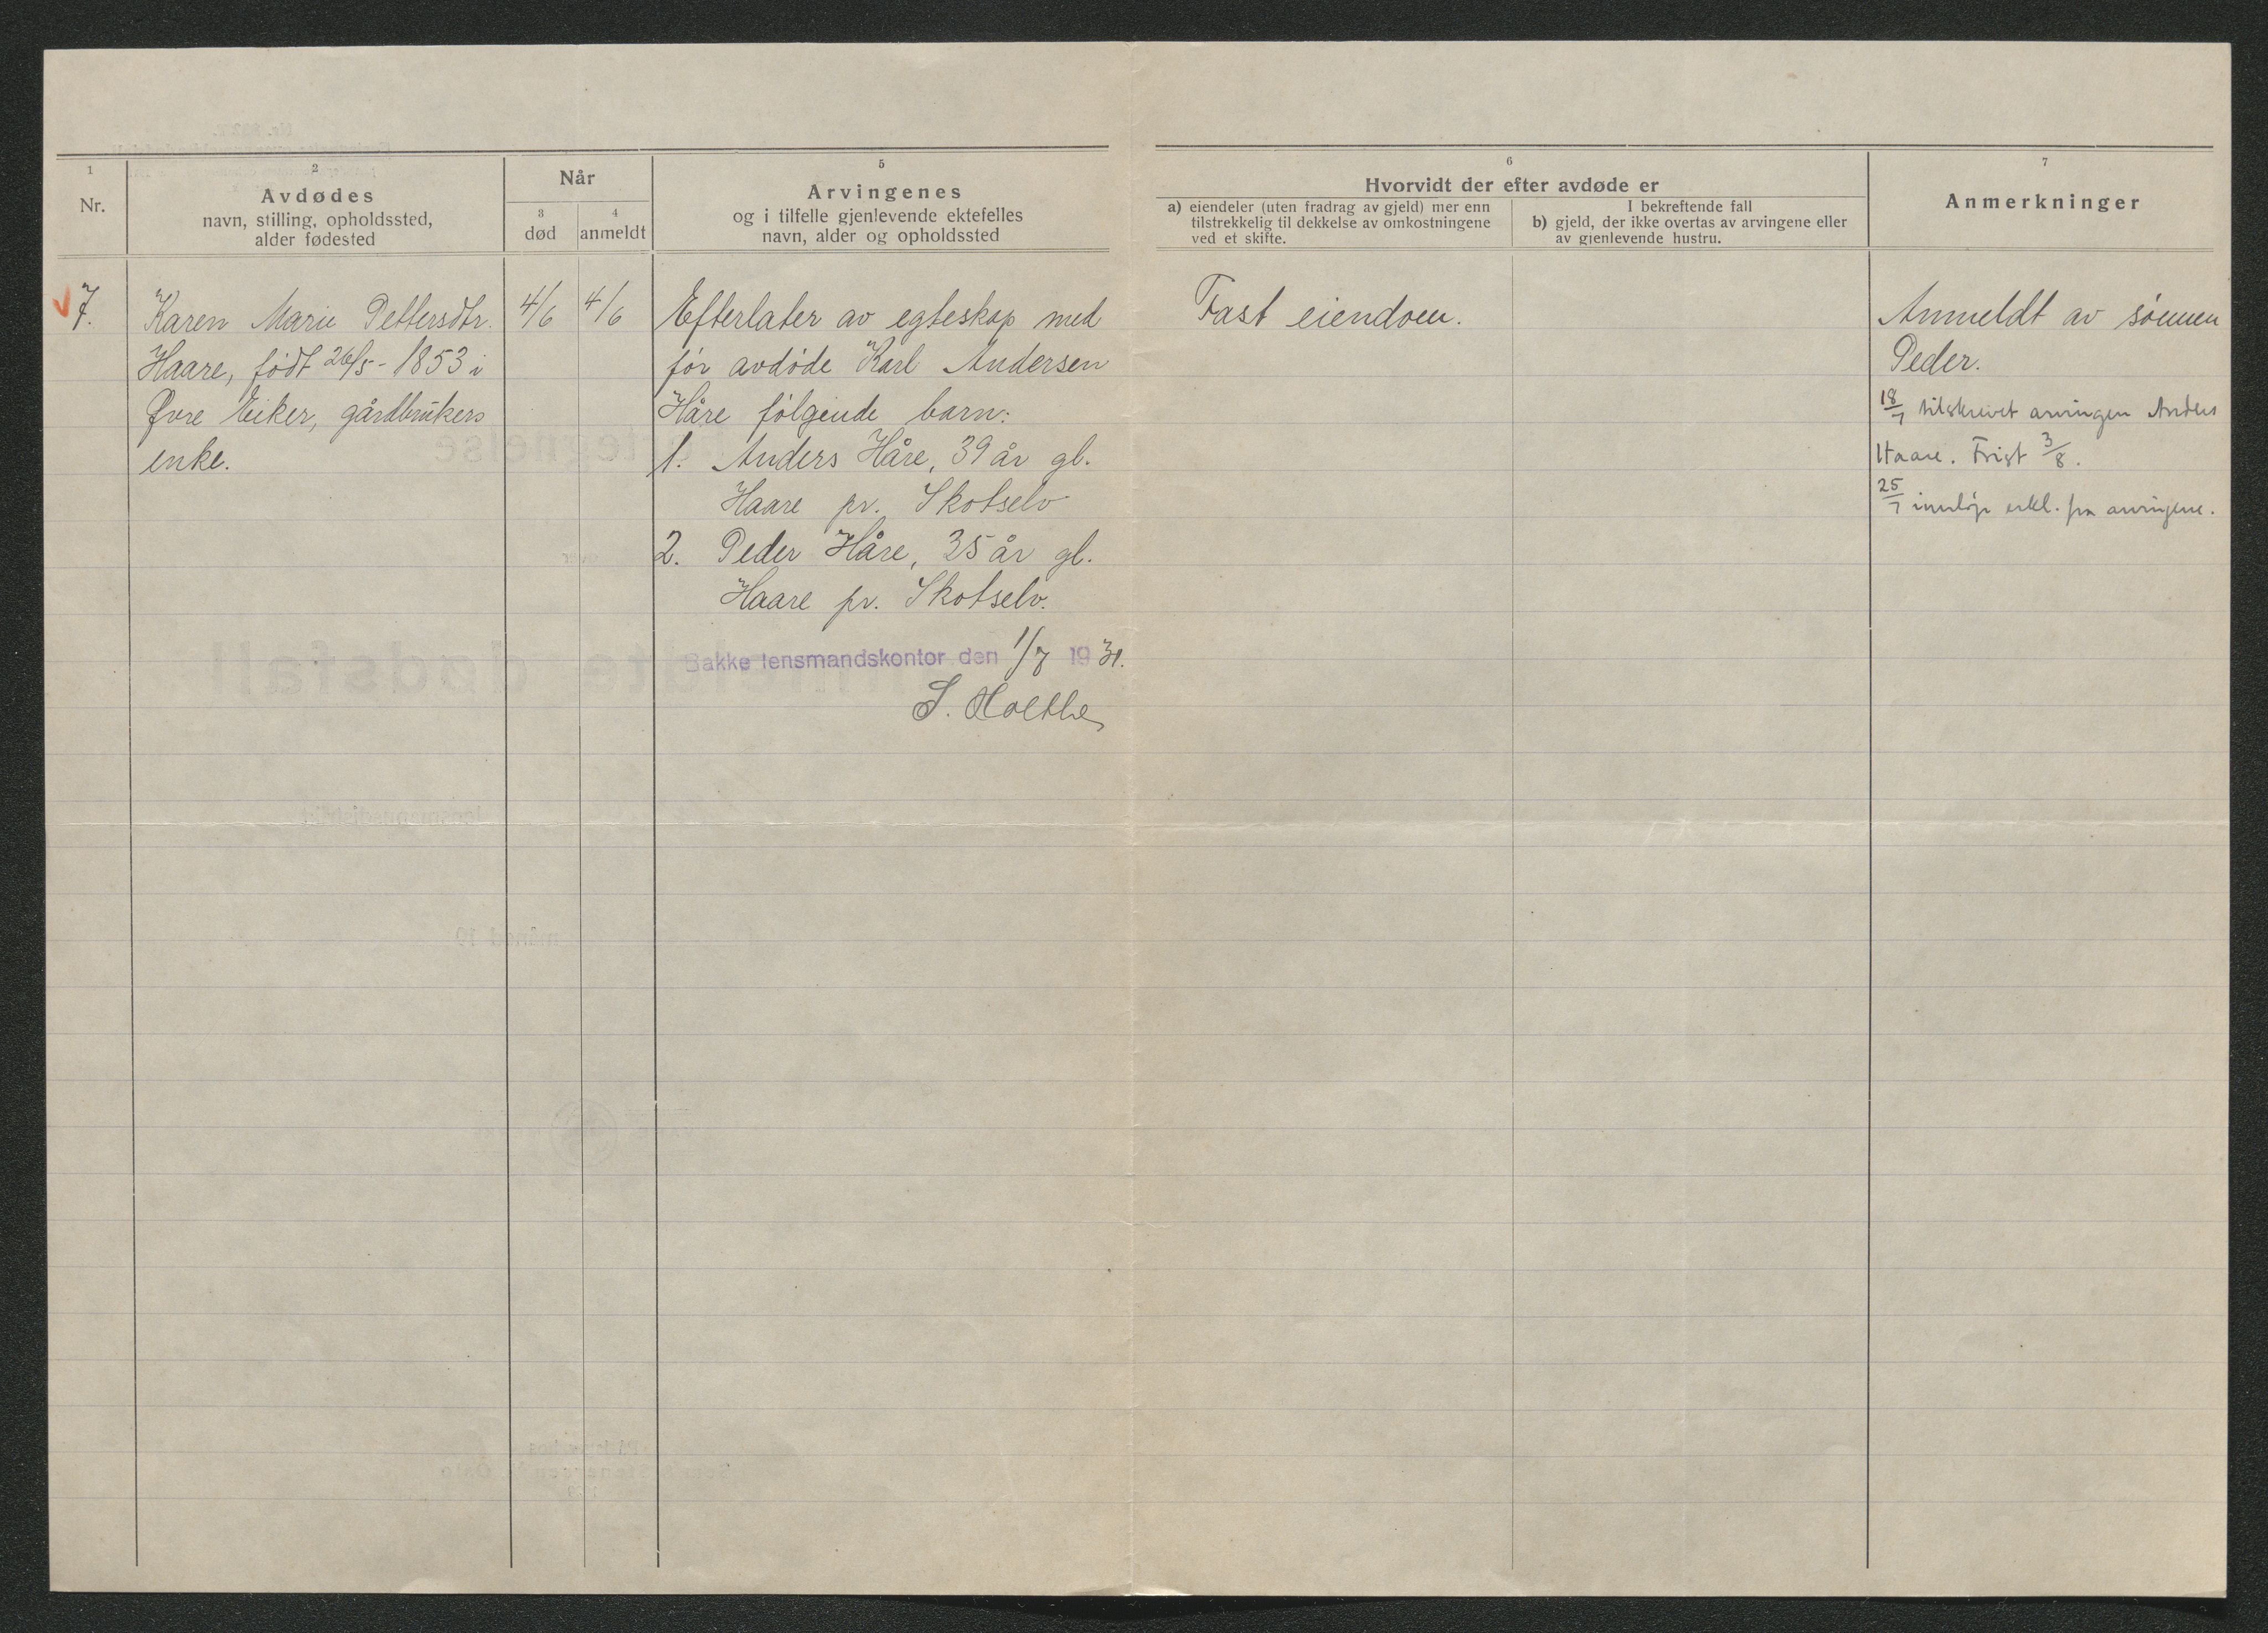 1
Nr.
2
Avdødes
navn, stilling, opholdssted,
alder fødested
Når
3
død
4
anmeldt
5
Arvingenes
og i tilfelle gjenlevende ektefelles
navn, alder og opholdssted
6
Hvorvidt der efter avdøde er
a) eiendeler (uten fradrag av gjeld) mer enn
tilstrekkelig til dekkelse av omkostningene
ved et skifte.
I bekreftende fall
b) gjeld, der ikke overtas av arvingene eller
av gjenlevende hustru.
7
Anmerkninger
7.
Karen Marie Pettersdtr.
Haare, født 26/5 - 1853 i
Øvre Eiker, gårdbrukers
enke.
4/6
4/6
Efterlater av egteskap med
før avdøde Karl Andersen
Håre følgende barn:
1. Anders Håre, 39 år gl.
Haare pr. Skotselv
2. Peder Håre, 35 år gl.
Haare pr. Skotselv.
Bakke lensmandskontor, den 1/7 1931.
S. Holthe
Fast eiendom.
Anmeldt av sønnen
Peder.
18/7 tilskrevet arvingen Anders
Haare. Frist 3/8.
25/7 innløp erkl. fra arvingene.